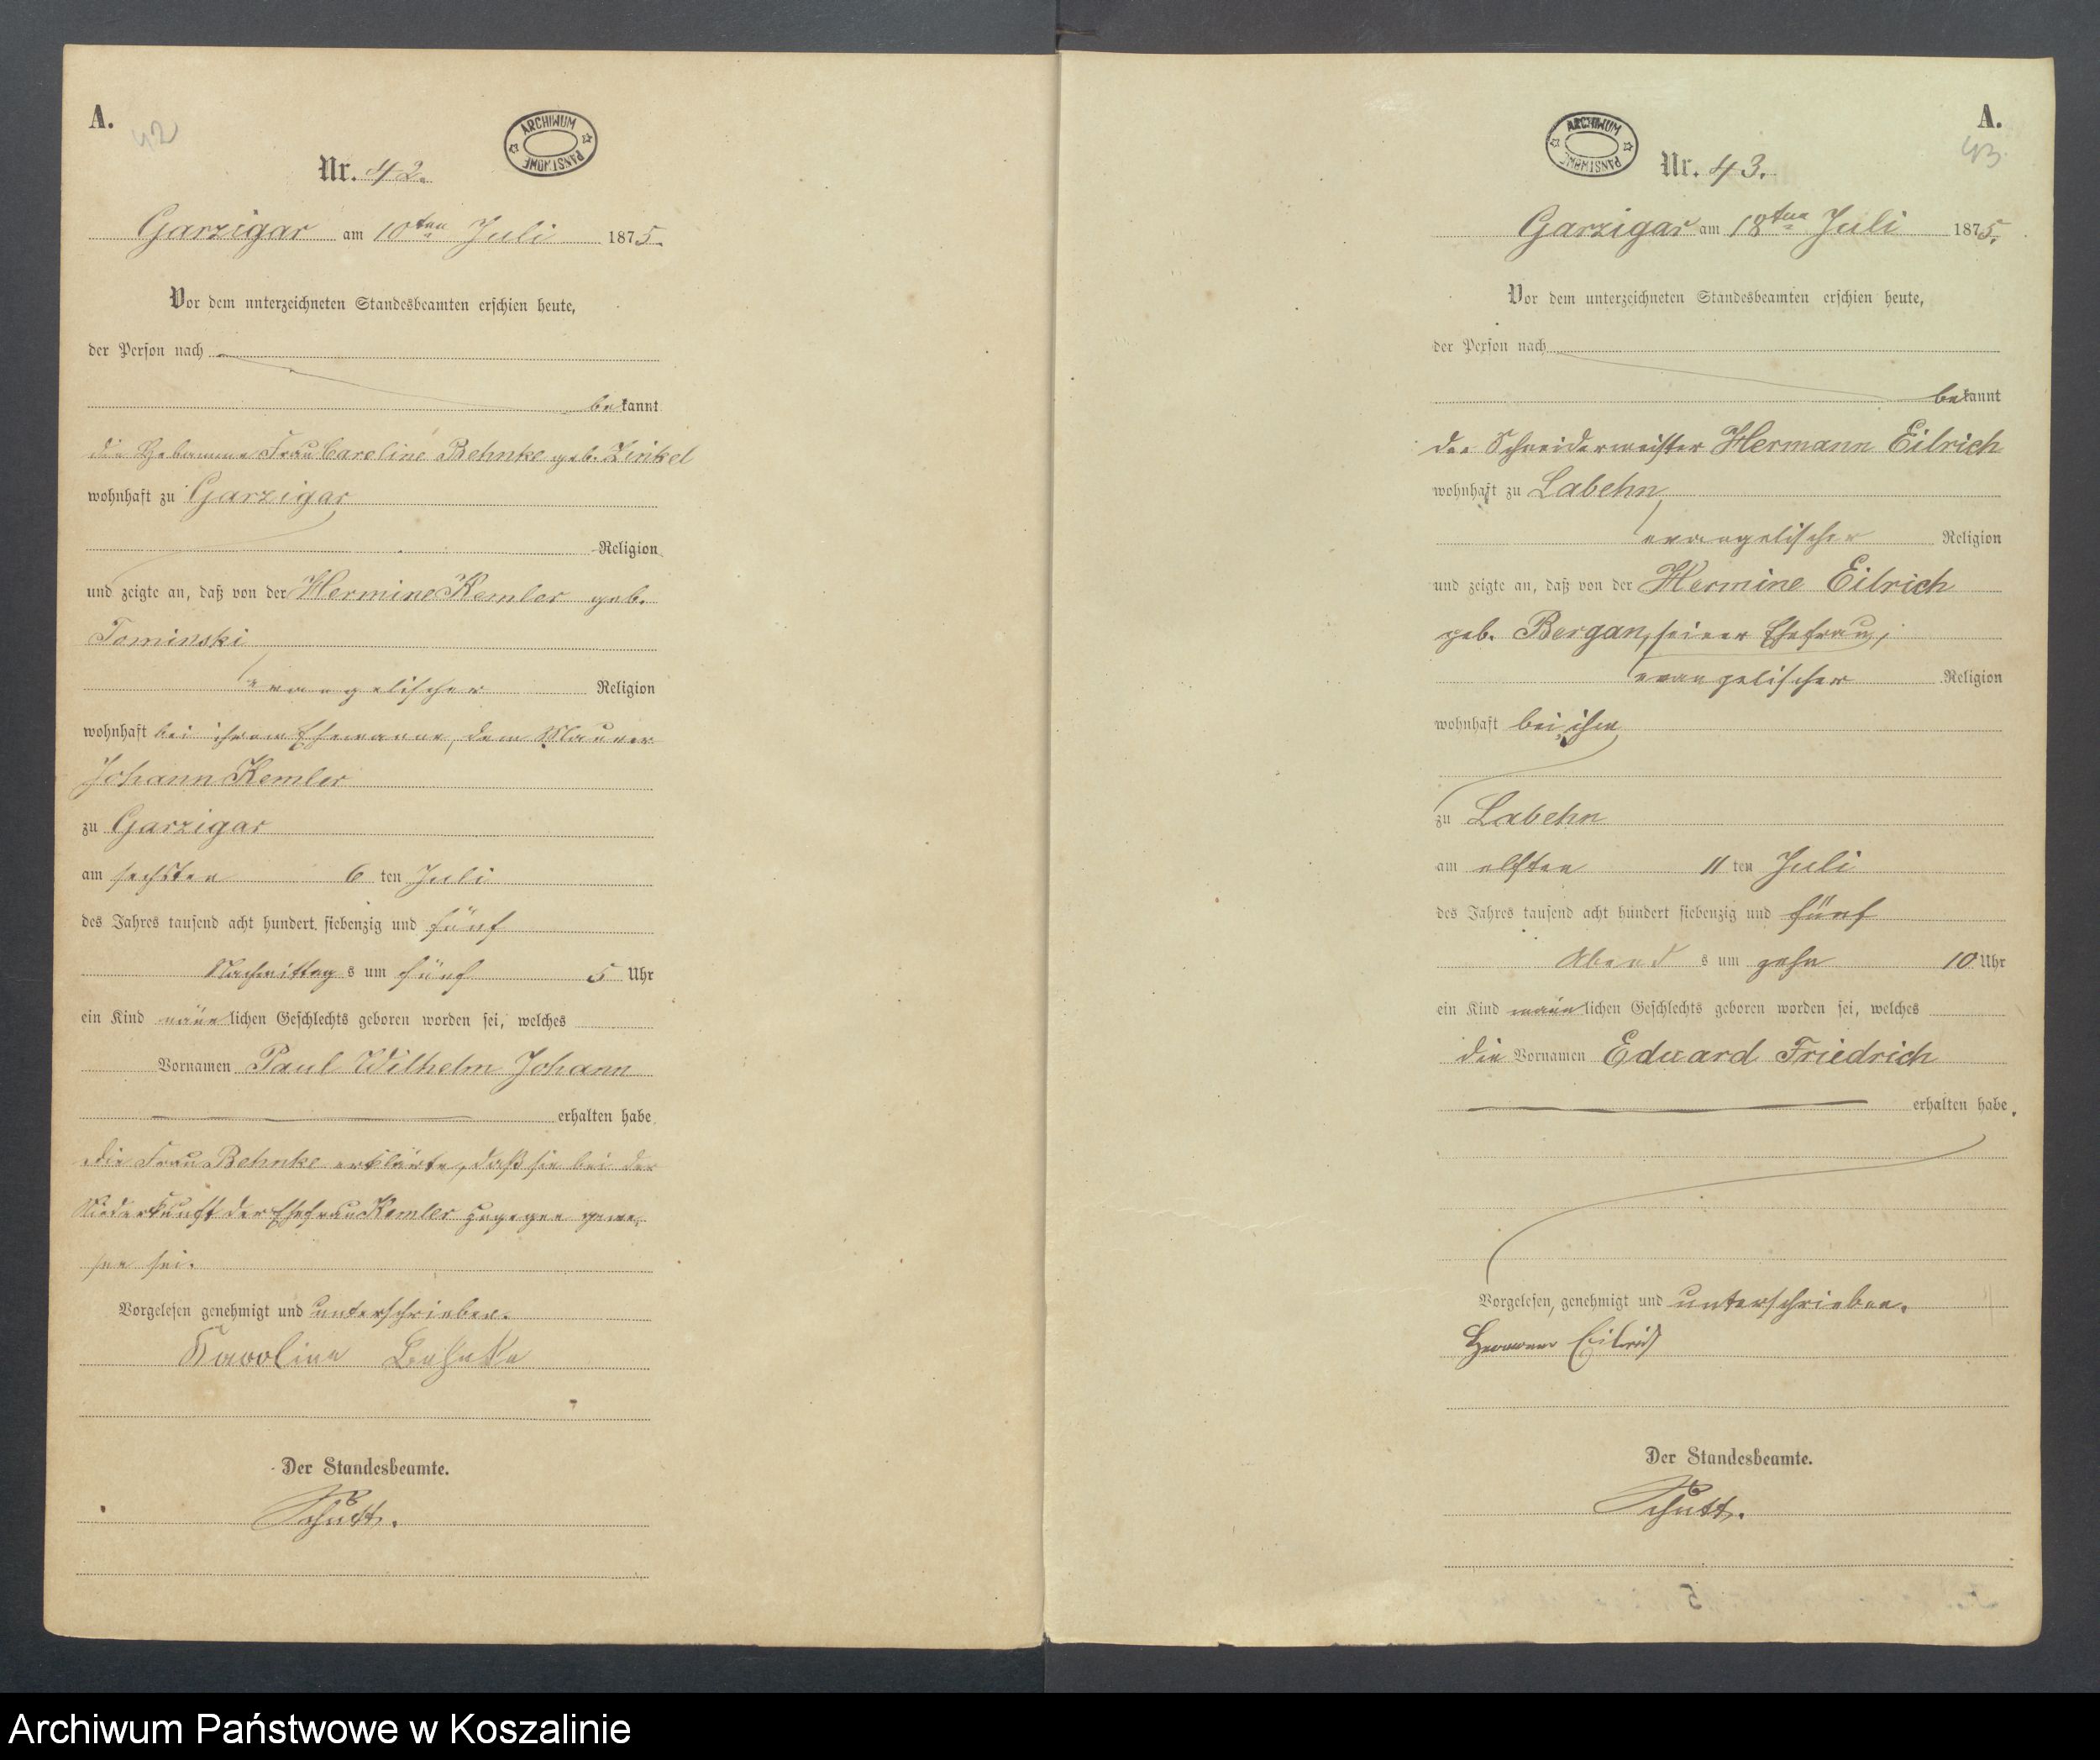 A.
42
ARCHIWUM PAŃSTWOWE
Nr. 42.
Garzigar am 10ten Juli 1875.
Vor dem unterzeichneten Standesbeamten erschien heute,
der Person nach
bekannt
die Hebamme Frau Caroline Behnke geb. Zinkel
wohnhaft zu Garzigar
Religion
und zeigte an, daß von der Hermine Kemler geb.
Tominski
evangelischer Religion
wohnhaft bei ihrem Ehemanne, dem Maurer
Johann Kemler
zu Garzigar
am sechsten 6 ten Juli
des Jahres tausend acht hundert siebenzig und fünf
Nachmittags um fünf 5 Uhr
ein Kind männlichen Geschlechts geboren worden sei, welches
Vornamen Paul Wilhelm Johann
erhalten habe
Die Frau Behnke erklärte, daß sie bei der
Niederkunft der Ehefrau Kemler zugegen gewe-
sen sei.
Vorgelesen genehmigt und unterschrieben.
Karoline Behnke
Der Standesbeamte.
Schutt.
A.
43.
ARCHIWUM PAŃSTWOWE
Nr. 43.
Garzigar am 18ten Juli 1875.
Vor dem unterzeichneten Standesbeamten erschien heute,
der Person nach
bekannt
der Schneidermeister Hermann Eilrich
wohnhaft zu Labehn
evangelischer Religion
und zeigte an, daß von der Hermine Eilrich
geb. Bergan, seiner Ehefrau,
evangelischer Religion
wohnhaft bei ihm
zu Labehn
am elften 11 ten Juli
des Jahres tausend acht hundert siebenzig und fünf
Abends um zehn 10 Uhr
ein Kind männlichen Geschlechts geboren worden sei, welches
die Vornamen Eduard Friedrich
erhalten habe.
Vorgelesen, genehmigt und unterschrieben.
Hermann Eilrich
Der Standesbeamte.
Schutt.
Archiwum Państwowe w Koszalinie